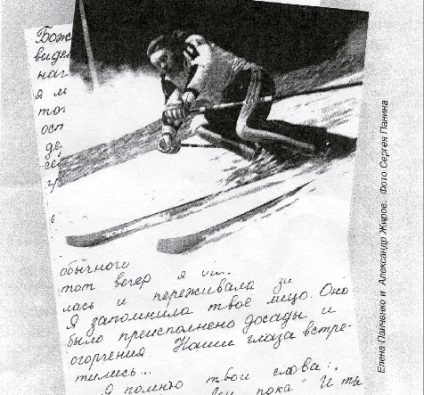 Бож
виде
наг
я м
тог
ост
де
обычного
тот вечер я
лась и переживала за
Я запомнила твоё лицо. Оно
было преисполнено досады и
огорчения Наши глаза встре-
тились...
Я помню твои слова:
пока" И ты
Елена Панченко и Александр Жиров. Фото Сергея Панина